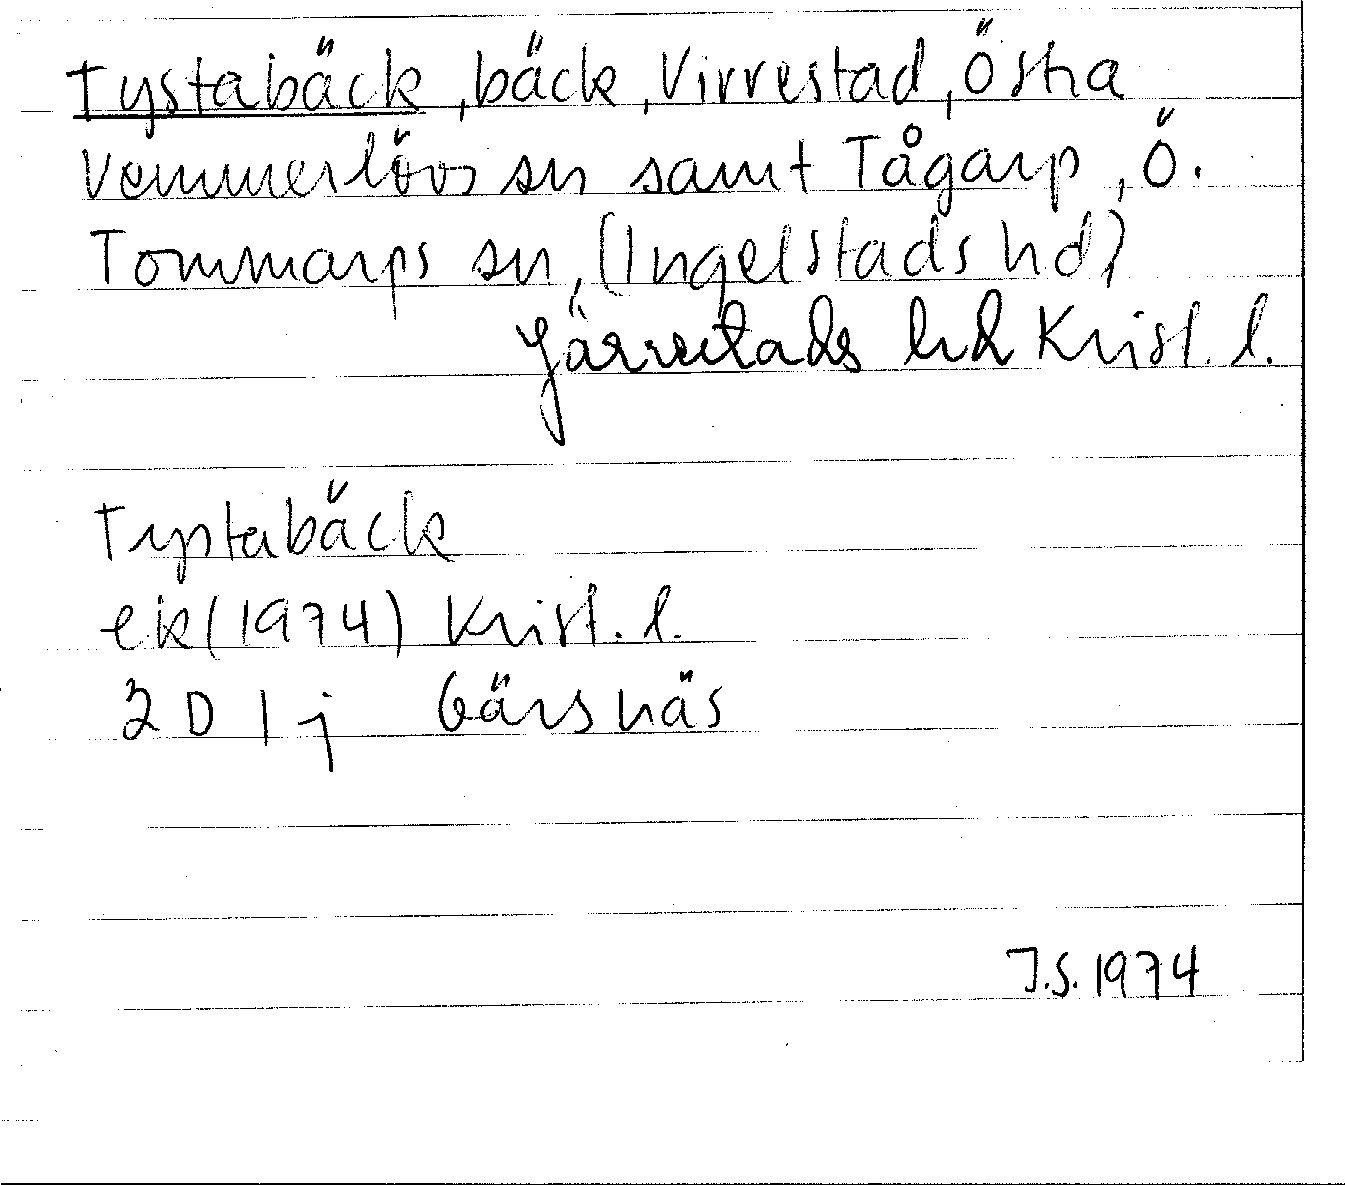 Tystabäck, bäck, Virrestad, Östra
Vemmerlövs sn samt Tågarp, Ö.
Tommarps sn, (Ingelstads hd)
Järrestads hd Krist. l.
Tystabäck
ek(1974) Krist. l.
2D 1j Gärsnäs
J.S. 1974